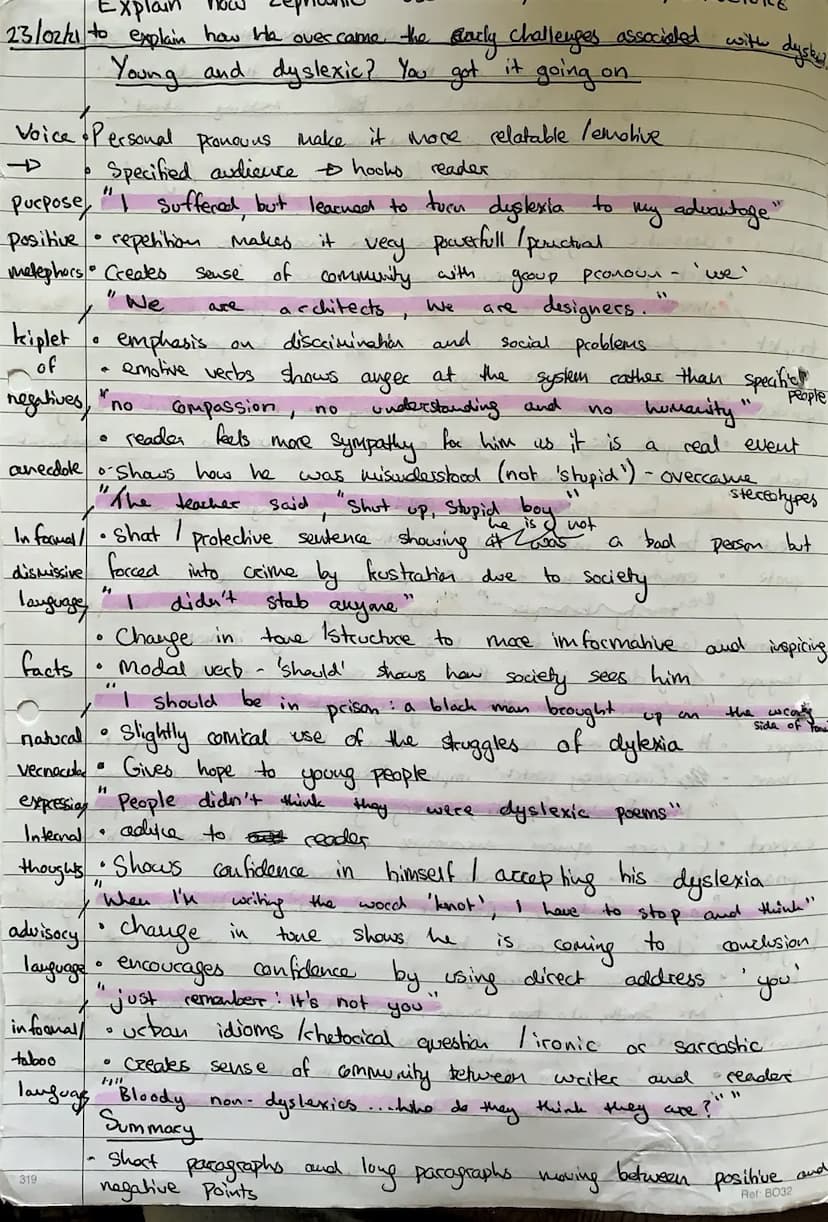 Explain how Zephaniah
23/02/21 to explain how he overcame the early challenges associated with
Young and dyslexic? You got it going on
Voice • Personal pronouns make it more relatable / emotive
→ • Specified audience → hooks reader
purpose, "I suffered, but learned to turn dyslexia to my advantage"
positive • repetition makes it very powerfull / punctual
metephors • Creates sense of community with group pronoun - 'we'
"We are architects, we are designers."
triplet • emphasis on discrimination and social problems
of • emotive verbs shows anger at the system rather than specific people
negatives, "no compassion, no understanding and no humanity"
• reader feels more sympathy for him as it is a real event
anecdote • Shows how he was misunderstood (not 'stupid') - overcame stereotypes
"The teacher said, "Shut up, stupid boy"
Informal / • Short / protective sentence showing he is not a bad person but
dismissive forced into crime by frustration due to society
language, "I didn't stab anyone"
• Change in tone / structure to more imformative and inspiring
facts • Modal verb - 'should' shows how society sees him
"I should be in prison: a black man brought up on the wrong side of
natural • Slightly comical use of the struggles of dylexia
vernacular • Gives hope to young people
expression "People didn't think they were dyslexic poems"
Internal • advice to reader
thoughts • Shows confidence in himself / accepting his dyslexia
"When I'm writing the word 'knot', I have to stop and think"
advisory • change in tone shows he is coming to conclusion
language • encourages confidence by using direct address 'you'
"just remember: it's not you"
informal / • urban idioms / rhetorical question / ironic or sarcastic
taboo • creates sense of community between writer and reader
language "Bloody non-dyslexics ... who do they think they are?"
Summary
- Short paragraphs and long paragraphs moving between positive and
negative points
319
Ref: BO32